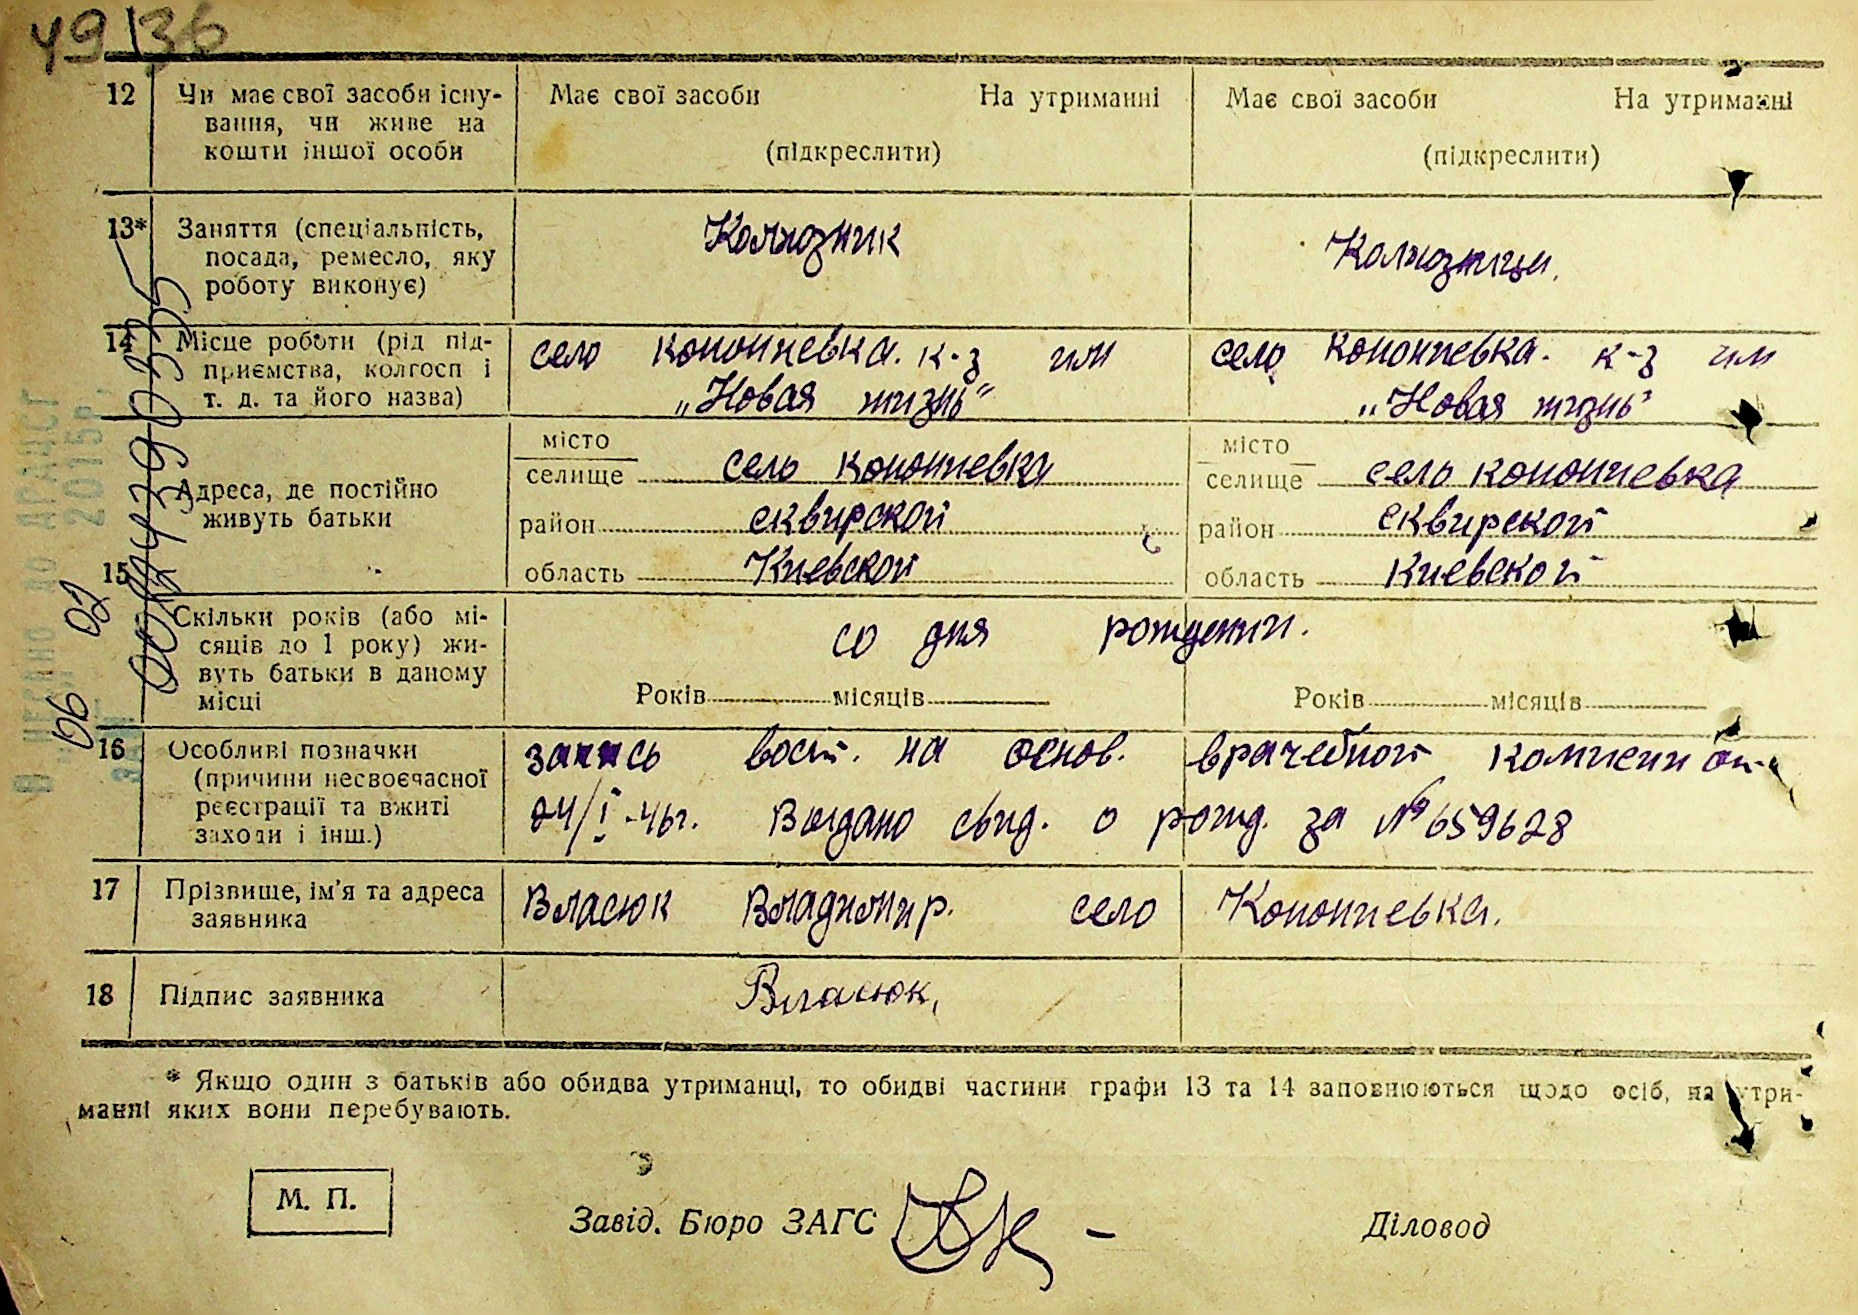 49 36
12 Чи має свої засоби існу- Має свої засоби На утриманні Має свої засоби На утриманні
вання, чи живе на
кошти іншої особи (підкреслити) (підкреслити)
13* Заняття (спеціальність, Колхозник Колхозница.
посада, ремесло, яку
роботу виконує)
14 Місце роботи (рід під- село кононневка. к-з им село кононневка. к-з им
приємства, колгосп і
т. д. та його назва) „Новая жизнь" „Новая жизнь"
місто місто
селище село кононневка селище село кононневка
Адреса, де постійно
живуть батьки
район сквирской район сквирской
15 область Киевской область Киевской
Скільки років (або мі- со дня рождения.
сяців до 1 року) жи-
вуть батьки в даному
місці Років місяців Років місяців
16 Особливі позначки запись вост. на основ. врачебной комисии от
(причини несвоєчасної
реєстрації та вжиті 24/I-46г. Выдано свид. о рожд. за № 659628
заходи і інш.)
17 Прізвище, ім'я та адреса Власюк Владимир. село Кононневка.
заявника
18 Підпис заявника Власюк,
* Якщо один з батьків або обидва утриманці, то обидві частини графи 13 та 14 заповнюються щодо осіб, на утри-
манні яких вони перебувають.
М. П.
Завід. Бюро ЗАГС Діловод
06 02
2015р.